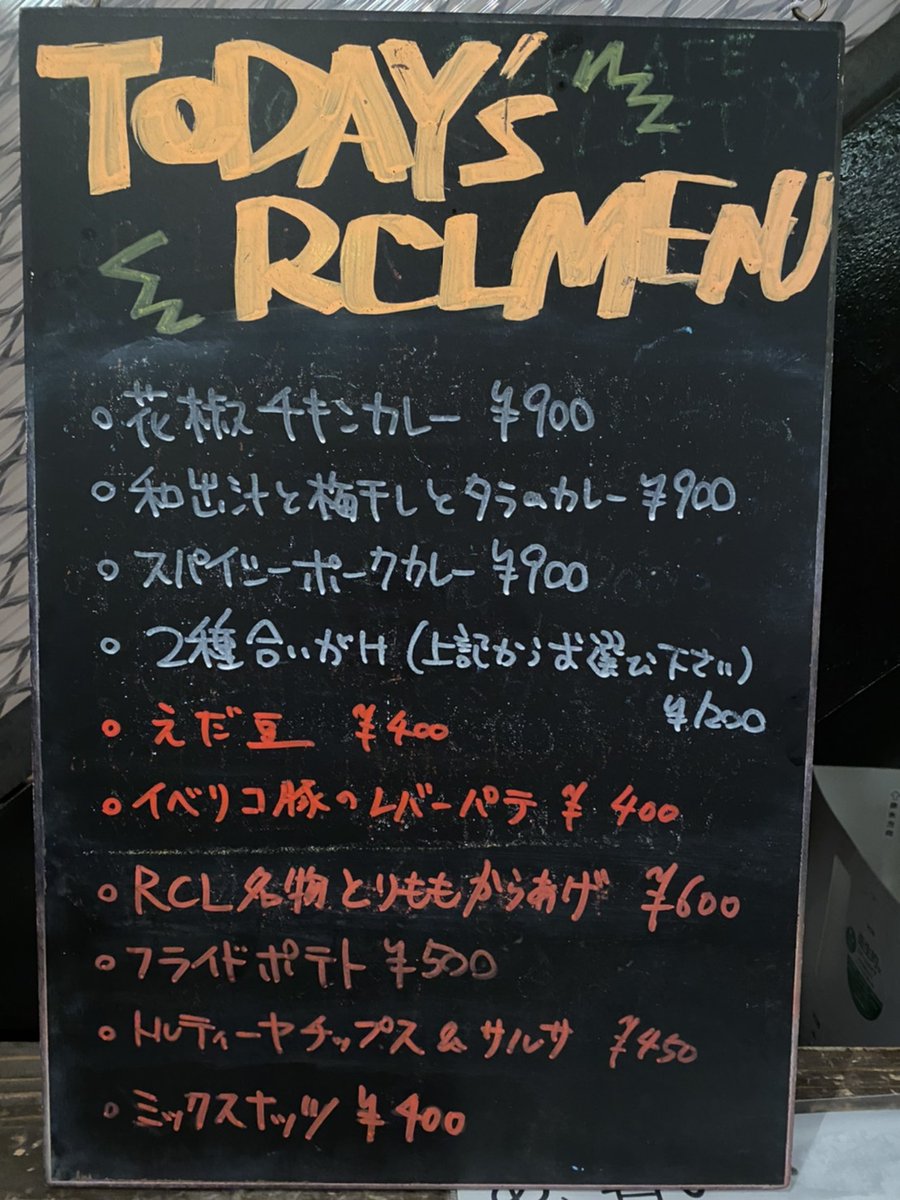 TODAY's
RCLMENU
○花椒チキンカレー ¥900
○和出汁と梅干しとタラのカレー ¥900
○スパイシーポークカレー ¥900
○2種合いがけ(上記からお選び下さい)
¥1200
○えだ豆 ¥400
○イベリコ豚のレバーパテ ¥400
○RCL名物とりももからあげ ¥600
○フライドポテト ¥500
○トルティーヤチップス&サルサ ¥450
○ミックスナッツ ¥400